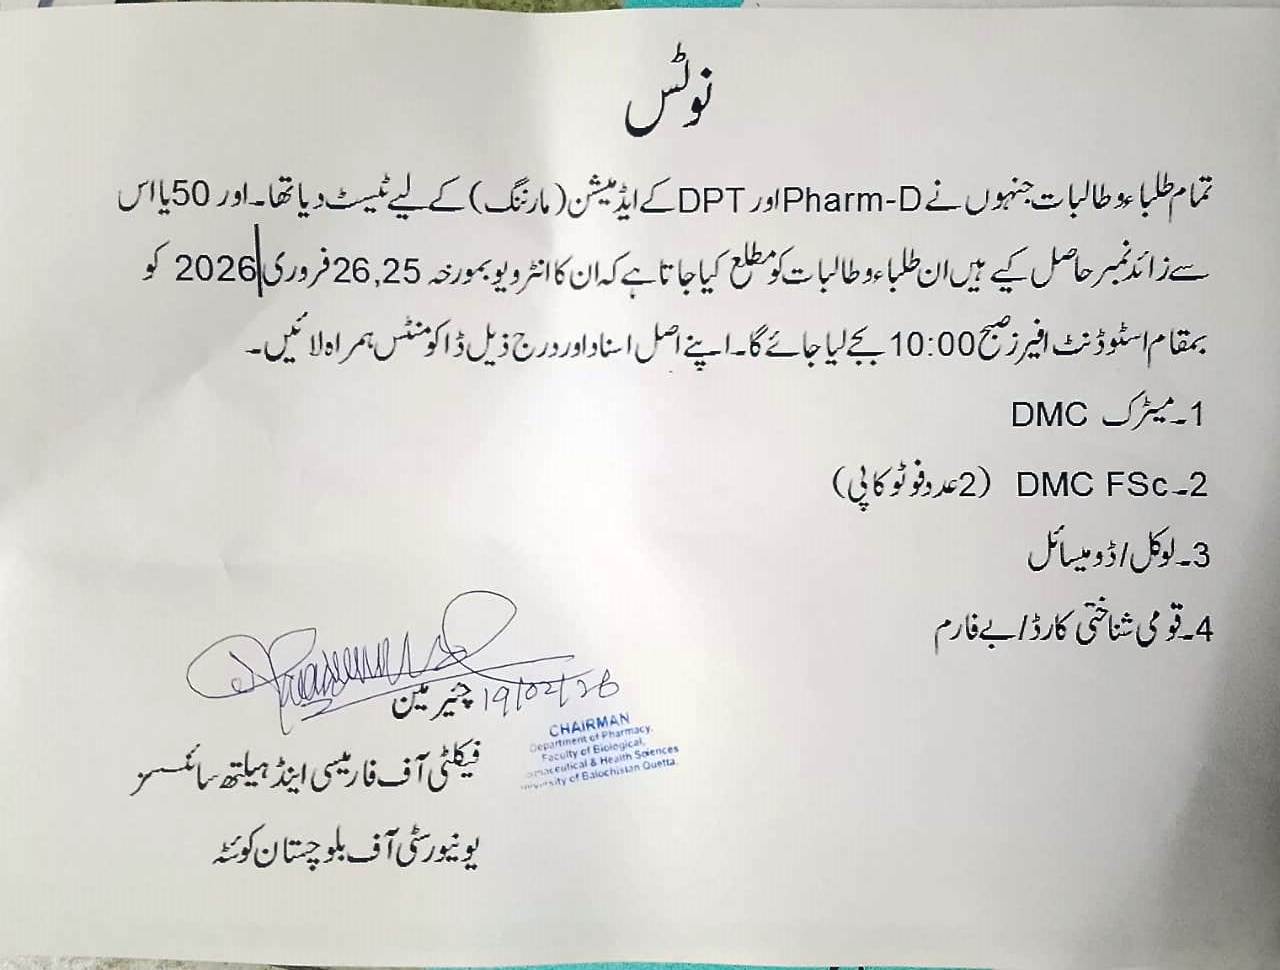 نوٹس
تمام طلباء و طالبات جنہوں نے Pharm-D اور DPT کے ایڈمیشن (مارننگ) کے لیے ٹیسٹ دیا تھا۔ اور 50 یا اس
سے زائد نمبر حاصل کیے ہیں ان طلباء و طالبات کو مطلع کیا جاتا ہے کہ ان کا انٹرویو بمورخہ 26,25 فروری 2026 کو
بمقام اسٹوڈنٹ افیرز صبح 10:00 بجے لیا جائے گا۔ اپنے اصل اسناد اور درج ذیل ڈاکومنٹس ہمراہ لائیں۔
1۔ میٹرک DMC
2۔ DMC FSc (2 عدد فوٹو کاپی)
3۔ لوکل/ڈومیسائل
4۔ قومی شناختی کارڈ/بے فارم
چئیرمین 19/02/26
CHAIRMAN
Department of Pharmacy,
Faculty of Biological,
& Health Sciences
University of Balochistan Quetta.
فیکلٹی آف فارمیسی اینڈ ہیلتھ سائنسسز
یونیورسٹی آف بلوچستان کوئٹہ